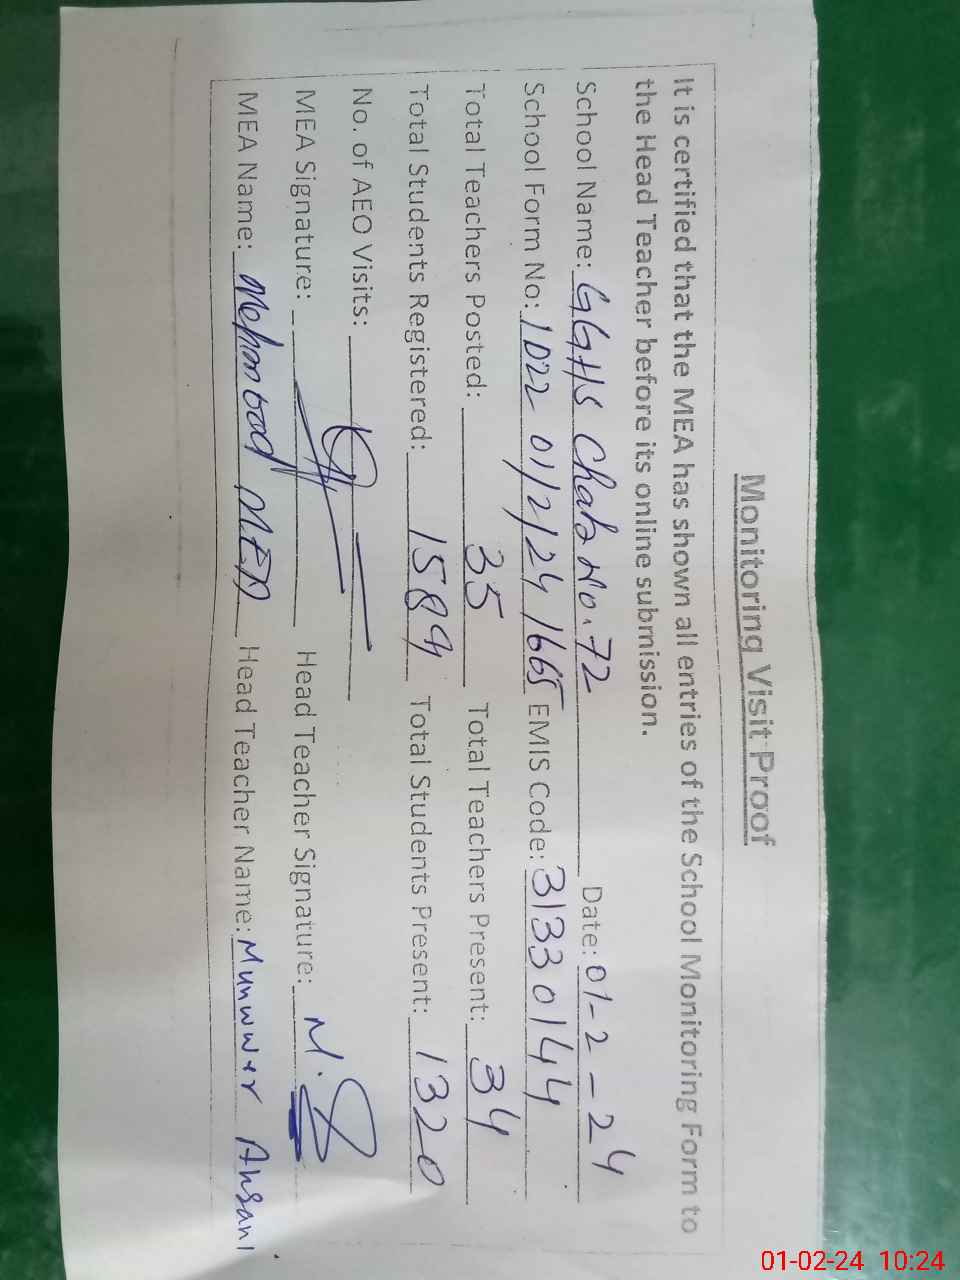 Monitoring Visit Proof
It is certified that the MEA has shown all entries of the School Monitoring Form to
the Head Teacher before its online submission.
School Name: GGHS Chak No.72 Date: 01-2-24
School Form No: 1022 01/2/24 1665 EMIS Code: 31330144
Total Teachers Posted: 35 Total Teachers Present: 34
Total Students Registered: 1589 Total Students Present: 1320
No. of AEO Visits:
MEA Signature: Head Teacher Signature: M.
MEA Name: Head Teacher Name: Munwwer Ahsani
01-02-24 10:24